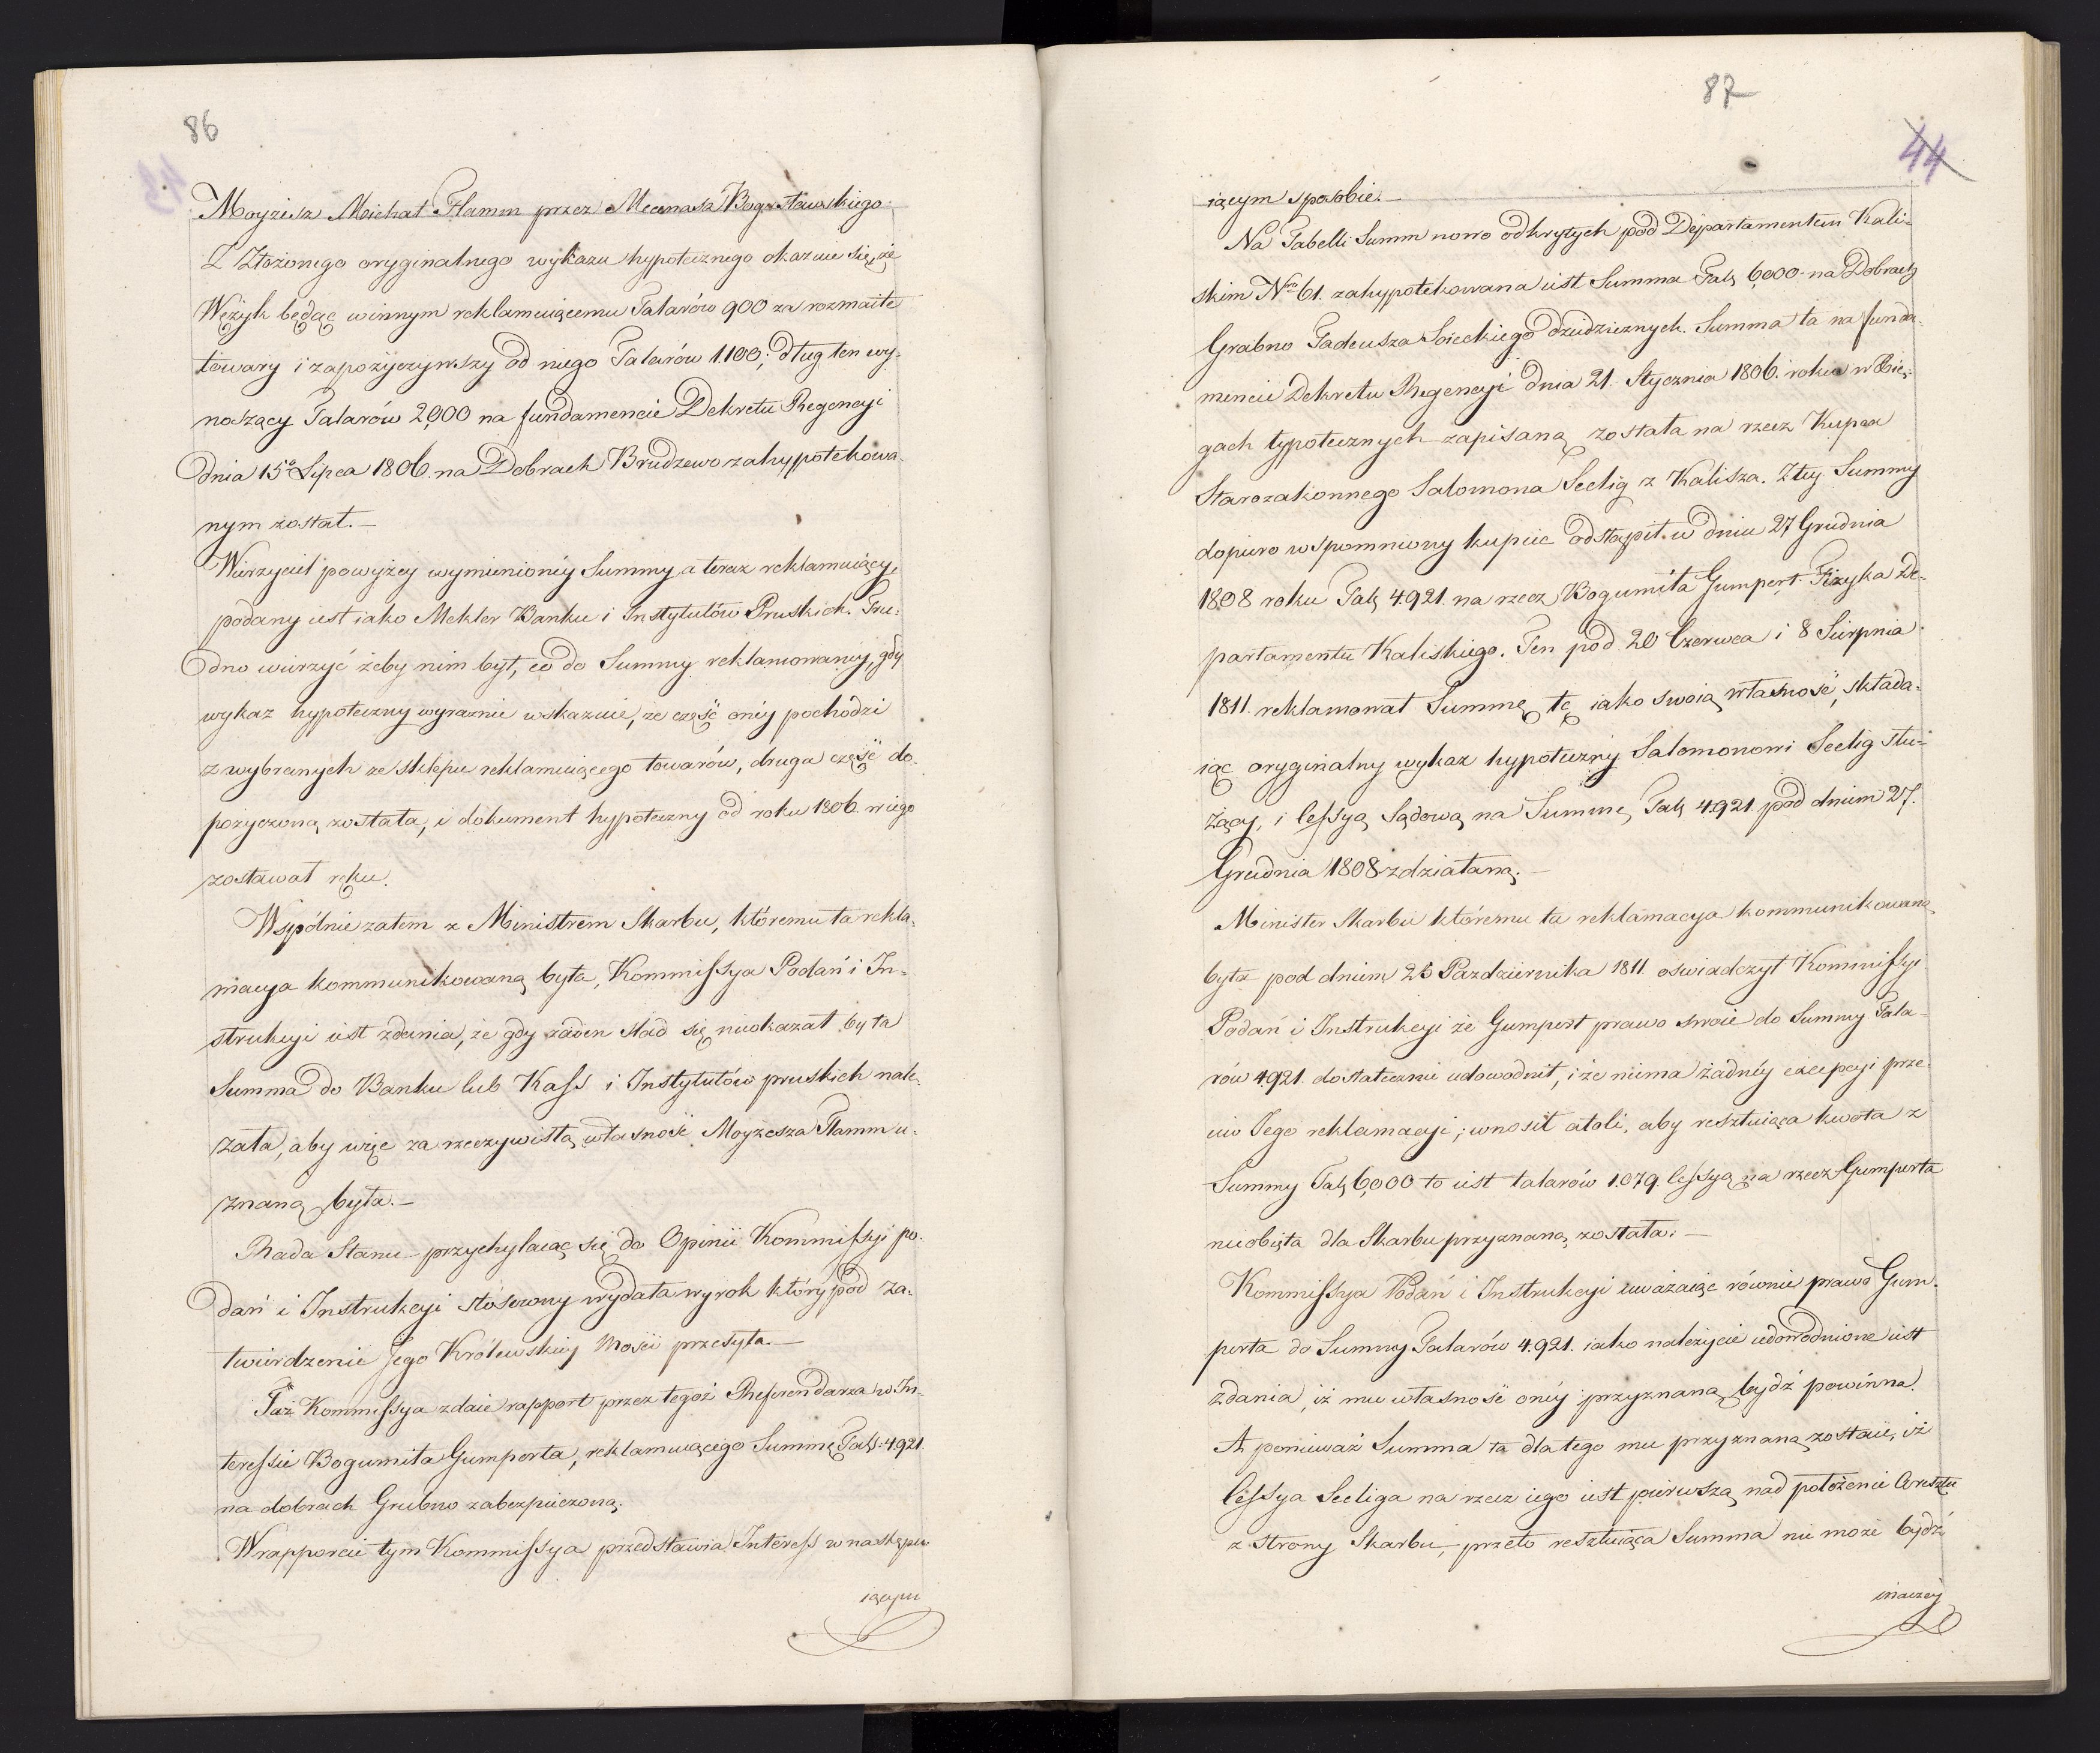 86
Moyzisz Michał Flamm przez Mecenasa Bogusławskiego.
Z Złożonego oryginalnego wykazu hypotecznego okazuie się, że
Wężyk będąc winnym reklamuiącemu Talarów 900 za rozmaite
towary i zapożyczywszy od niego Talarów 1.100; dług ten wy-
noszący Talarów 2,000 na fundamencie Dekretu Regencyi
dnia 15º Lipca 1806. na Dobrach Brudzewo zahypotekowa-
nym został.—
Wierzyciel powyżey wymienionéy Summy, a teraz reklamuiący,
podany iest iako Mekler Banku i Instytutów Pruskich. Tru-
dno wierzyć żeby nim był, co do Summy reklamowanéy, gdy
wykaz hypoteczny wyraznie wskazuie, że część onéy pochodzi
z wybranych ze sklepu reklamuiącego towarów, druga część do-
pożyczoną została, i dokument hypoteczny od roku 1806. w iego
zostawał ręku.
Wspólnie zatem z Ministrem Skarbu, któremu ta rekla-
macya kommunikowaną była, Kommissya Podań i In-
strukcyi iest zdania, że gdy żaden ślad się nieokazał by ta
Summa do Banku lub Kass i Instytutów pruskich nale-
żała, aby więc za rzeczywistą własność Moyżesza Flamm u-
znaną była.—
Rada Stanu przychylaiąc się do Opinii Kommissyi po-
dań i Instrukcyi stosowny wydała wyrok który pod za-
twierdzenie Jego Królewskiey Mości przesyła.—
Taż Kommissya zdaie rapport przez tegoż Referendarza w In-
teressie Bogumiła Gumperta, reklamuiącego Summę Tal: 4921
na dobrach Grabno zabezpieczoną.
W rapporcie tym Kommissya przedstawia Interess w następu
iącym
87
44
iącym sposobie.—
Na Tabelli Summ nowo odkrytych pod Departamentem Kali-
skim Nro 61. zahypotekowana iest Summa Tal: 6,000 na Dobrach
Grabno Tadeusza Soieckiego dziedzicznych. Summa ta na funda-
mencie Dekretu Regencyi dnia 21. Stycznia 1806. roku w Xię-
gach hypotecznych zapisaną została na rzecz Kupca
Starozakonnego Salomona Seelig z Kalisza. Z tey Summy
dopiero wspomniony kupiec odstąpił w dniu 27 Grudnia
1808 roku Tal: 4.921. na rzecz Bogumiła Gumpert Fizyka De-
partamentu Kaliskiego. Ten pod 20 Czerwca i 8 Sierpnia
1811. reklamował Summę tę iako swoią własność, składa-
iąc oryginalny wykaz hypoteczny Salomonowi Seelig słu-
żący, i Cessyą Sądową na Summę Tal: 4921. pod dniem 27.
Grudnia 1808 zdziałaną.—
Minister Skarbu któremu ta reklamacya kommunikowaną
była pod dniem 25 Pazdziernika 1811 oswiadczył Kommissyi
Podań i Instrukcyi że Gumpert prawo swoie do Summy Tala-
rów 4.921. dostatecznie udowodnił, i że niema żadnéy excepcyi prze-
ciw Jego reklamacyi; wnosił atoli, aby resztuiąca kwota z
Summy Tal: 6,000 to iest talarów 1.079. Cessyą na rzecz Gumperta
nieobięta dla Skarbu przyznaną została.—
Kommissya Podań i Instrukcyi uważaiąc równie prawo Gum-
perta do Summy Talarów 4.921. iako należycie udowodnione iest
zdania, iż mu własność onéy przyznaną bydź powinna.
A ponieważ Summa ta dla tego mu przyznaną zostaie, iż
Cessya Seeliga na rzecz iego iest pierwszą nad położenie Aresztu
z strony Skarbu, przeto resztuiąca Summa nie może bydź
inaczey